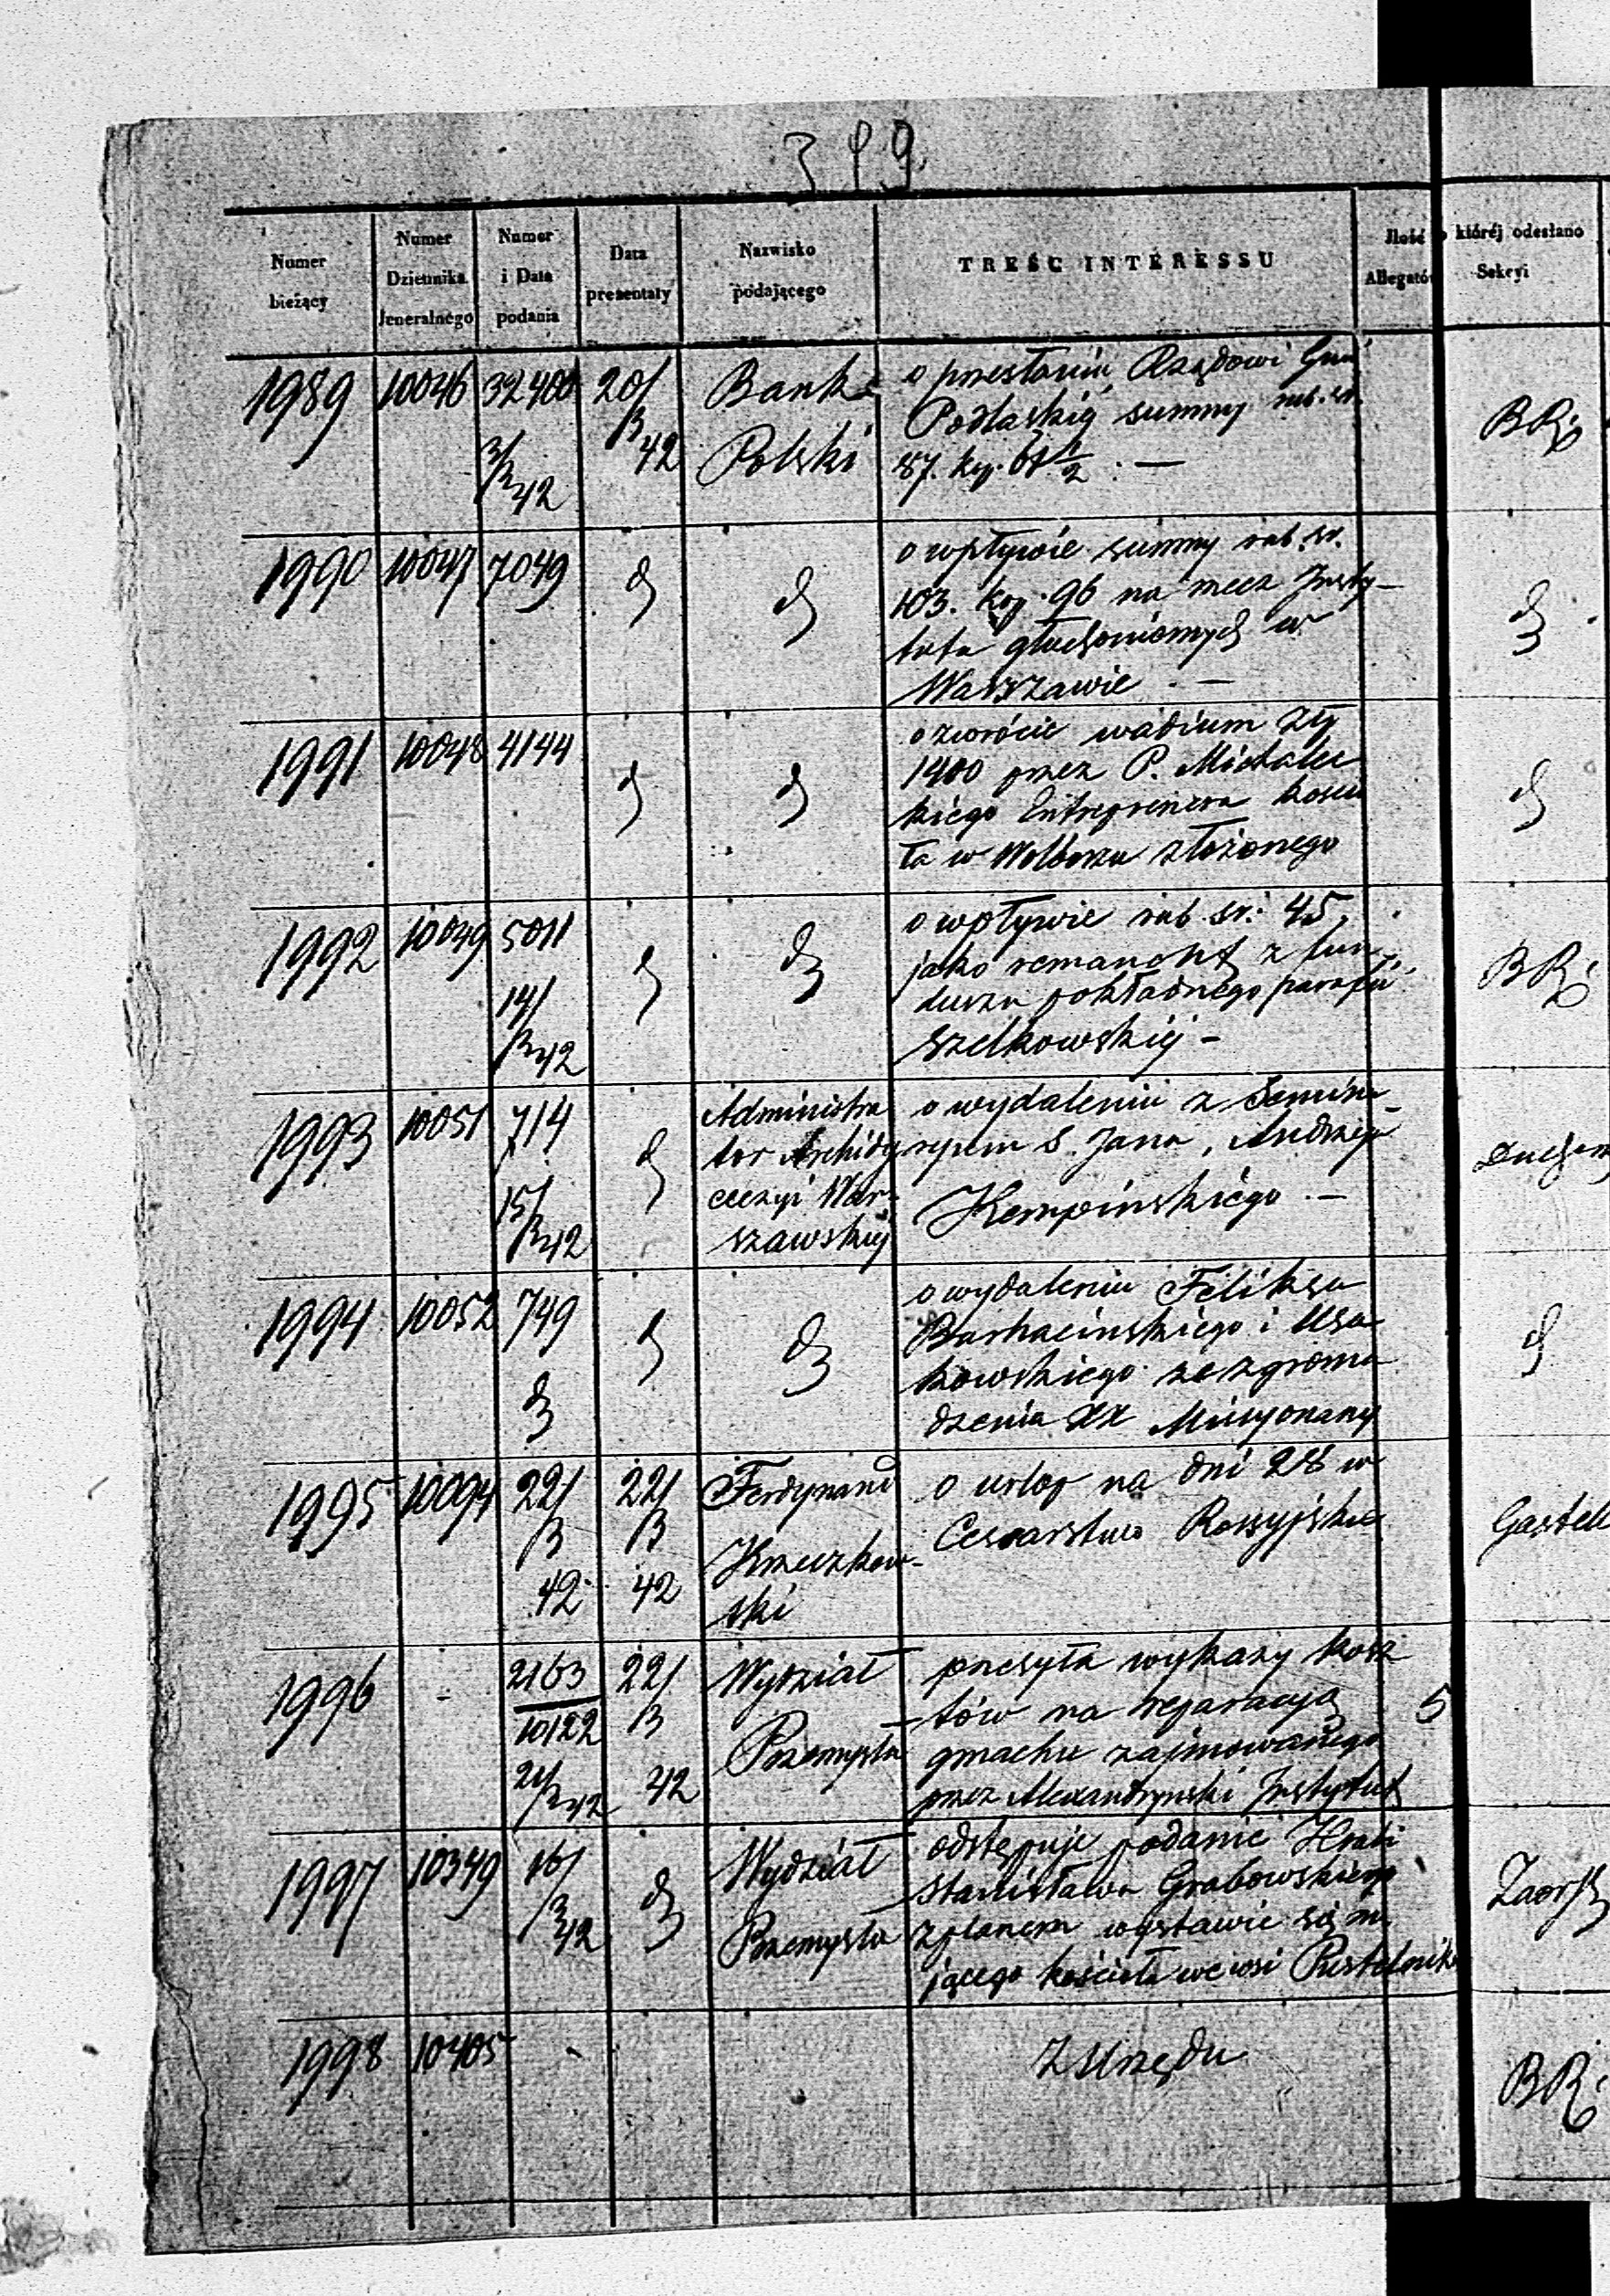 319
Numer bieżący
Numer Dziennika Jeneralnego
Numer i Data podania
Data prezentaty
Nazwisko podającego
TREŚC INTERESSU
Ilość Allegatów
któréj odesłano Sekcyi
1989 10046 32400 20/3 42 Bank o przesłaniu Rządowi Gub
3/3 42 Polski Podlaskig summy rub. sr.
87. kop. 61 1/2 . — BR
1990 10047 7049 d d o wpływie summy rub. sr.
103. kop. 96 na rzecz Insty-
tutu głuchoniemych w
Warszawie . — d
1991 10048 4144 d d o zwrócie wadium Złp
1400 przez P. Michalec
kiego Entreprenera kościo
ła w Wolborzu złożonego d
1992 10049 5011 d d o wpływie rub. sr. 45,
14/3 42 jako remanent z fun-
duszu pokładnego parafii
Szelkowskiej - BR
1993 10051 714 d Administra o wydaleniu z Semina-
tor Archidy ryum S. Jana, Andrzeja
15/3 42 ecezyi War- Kempińskiégo . —
szawskiej
1994 10052 749 d d o wydaleniu Feliksa
d Barhacińskiego i Usa
kowskiego ze zgroma
dzenia XX Missyonarzy d
1995 10094 22/3 42 22/3 42 Ferdynand o urlop na dni 28 w
Cesarstwo Rossyjskie
ski
1996 - 2163 22/3 42 Wydział przesyła wykazy kosz
10122 Przemysłu tów na reparacyą 5
21/3 42 gmachu zajmowanego
przez Alexandryński Instytut
1997 10349 16/3 42 d Wydział odstępuje podanie Hrabi
Przemysłu Stanisława Grabowskiego
z planem wystawić się ma
jącego kościoła we wsi Pustelnik
1998 10405 - Z Urzędu BR